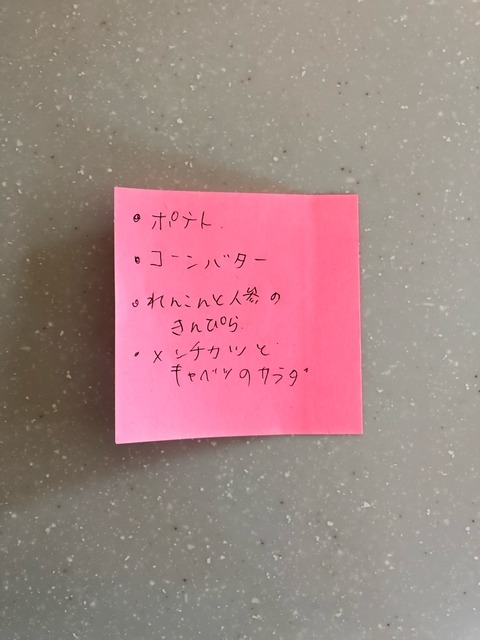 • ポテト
• コーンバター
• れんこんと人参の
きんぴら
• メンチカツと
キャベツのサラダ